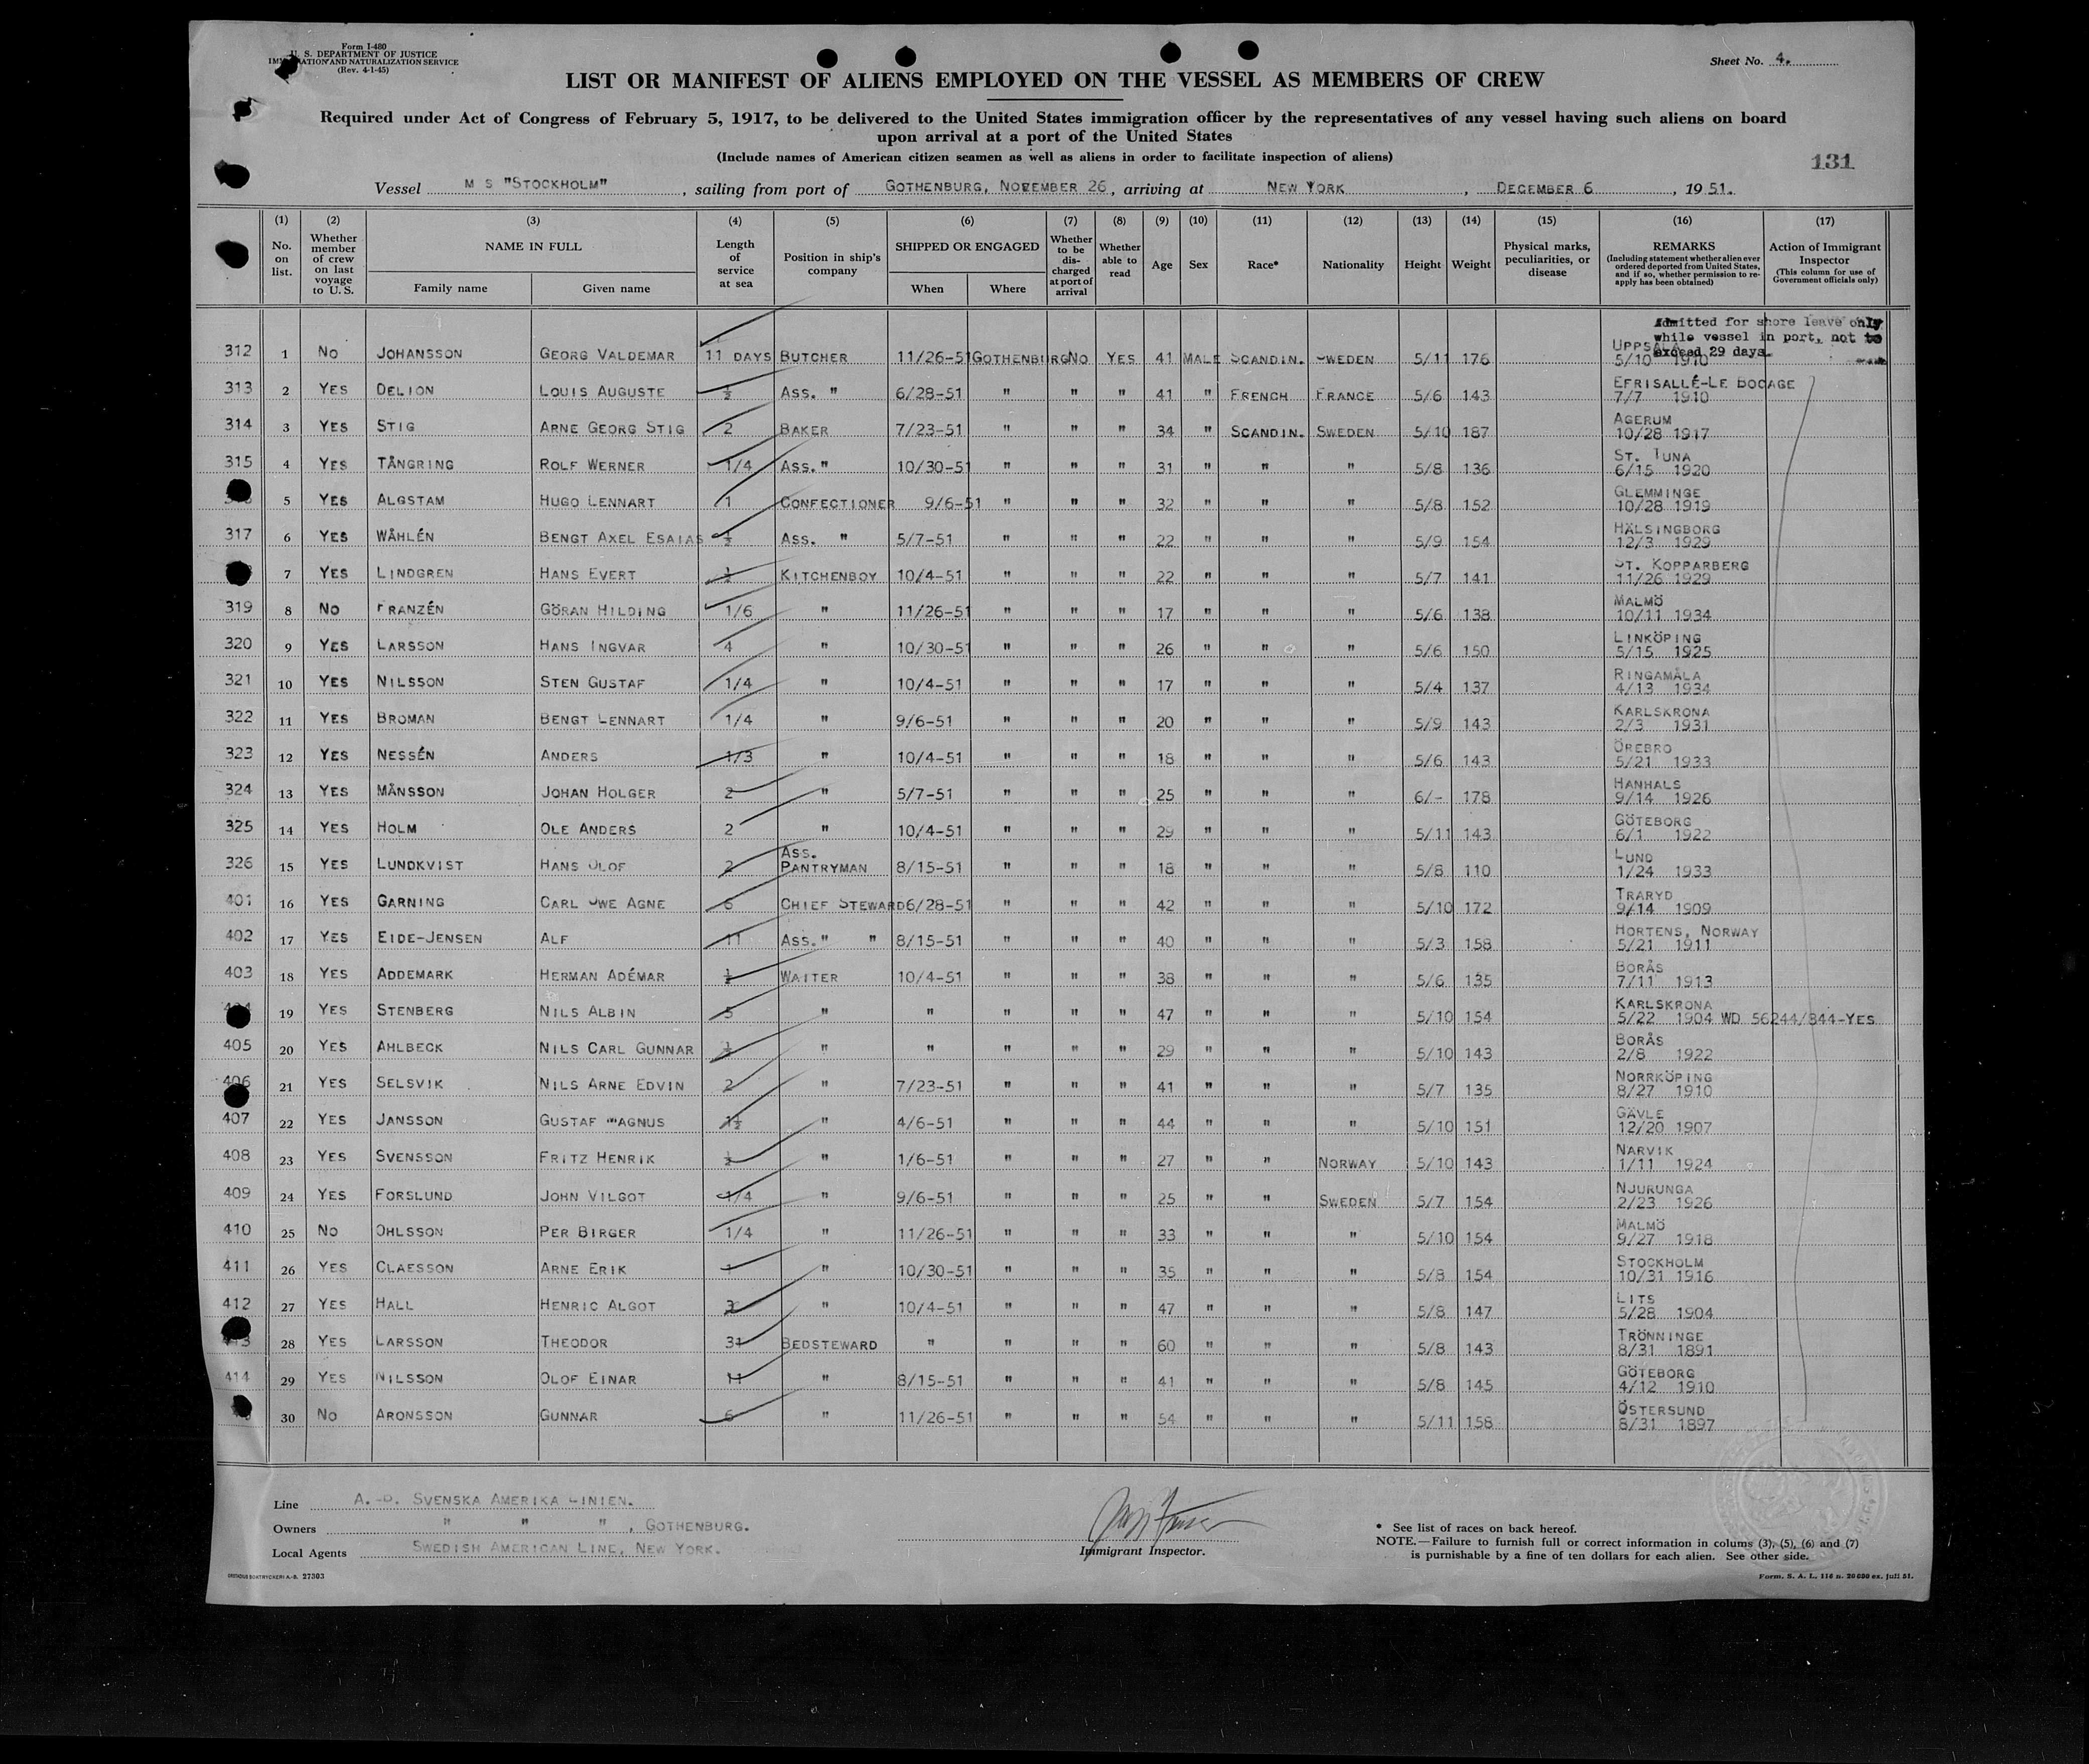 Form I-480
U. S. DEPARTMENT OF JUSTICE
IMMIGRATION AND NATURALIZATION SERVICE
(Rev. 4-1-45)
Sheet No. 4.
LIST OR MANIFEST OF ALIENS EMPLOYED ON THE VESSEL AS MEMBERS OF CREW
Required under Act of Congress of February 5, 1917, to be delivered to the United States immigration officer by the representatives of any vessel having such aliens on board
upon arrival at a port of the United States
(Include names of American citizen seamen as well as aliens in order to facilitate inspection of aliens)
131
Vessel M S "STOCKHOLM", sailing from port of GOTHENBURG, NOVEMBER 26, arriving at NEW YORK, DECEMBER 6, 1951.
(1) (2) (3) (4) (5) (6) (7) (8) (9) (10) (11) (12) (13) (14) (15) (16) (17)
No. on list. Whether member of crew on last voyage to U. S. NAME IN FULL Family name Given name Length of service at sea Position in ship's company SHIPPED OR ENGAGED When Where Whether to be discharged at port of arrival Whether able to read Age Sex Race* Nationality Height Weight Physical marks, peculiarities, or disease REMARKS (Including statement whether alien ever ordered deported from United States, and if so, whether permission to re-apply has been obtained) Action of Immigrant Inspector (This column for use of Government officials only)
Admitted for shore leave only
while vessel in port, not to
exceed 29 days.
312 1 NO JOHANSSON GEORG VALDEMAR 11 DAYS BUTCHER 11/26-51 GOTHENBURG NO YES 41 MALE SCANDIN. SWEDEN 5/11 176 UPPSALA 5/10 1910
313 2 YES DELION LOUIS AUGUSTE ½ ASS. " 6/28-51 " " " 41 " FRENCH FRANCE 5/6 143 EFRISALLÉ-LE BOCAGE 7/7 1910
314 3 YES STIG ARNE GEORG STIG 2 BAKER 7/23-51 " " " 34 " SCANDIN. SWEDEN 5/10 187 AGERUM 10/28 1917
315 4 YES TÅNGRING ROLF WERNER 1/4 ASS." 10/30-51 " " " 31 " " " 5/8 136 ST. TUNA 6/15 1920
5 YES ALGSTAM HUGO LENNART 1 CONFECTIONER 9/6-51 " " " 32 " " " 5/8 152 GLEMMINGE 10/28 1919
317 6 YES WÅHLÉN BENGT AXEL ESAIAS ½ ASS. " 5/7-51 " " " 22 " " " 5/9 154 HÄLSINGBORG 12/3 1929
7 YES LINDGREN HANS EVERT ½ KITCHENBOY 10/4-51 " " " 22 " " " 5/7 141 ST. KOPPARBERG 11/26 1929
319 8 NO FRANZÉN GÖRAN HILDING 1/6 " 11/26-51 " " " 17 " " " 5/6 138 MALMÖ 10/11 1934
320 9 YES LARSSON HANS INGVAR 4 " 10/30-51 " " " 26 " " " 5/6 150 LINKÖPING 5/15 1925
321 10 YES NILSSON STEN GUSTAF 1/4 " 10/4-51 " " " 17 " " " 5/4 137 RINGAMÅLA 4/13 1934
322 11 YES BROMAN BENGT LENNART 1/4 " 9/6-51 " " " 20 " " " 5/9 143 KARLSKRONA 2/3 1931
323 12 YES NESSÉN ANDERS 1/3 " 10/4-51 " " " 18 " " " 5/6 143 ÖREBRO 5/21 1933
324 13 YES MÅNSSON JOHAN HOLGER 2 " 5/7-51 " " " 25 " " " 6/- 178 HANHALS 9/14 1926
325 14 YES HOLM OLE ANDERS 2 " 10/4-51 " " " 29 " " " 5/11 143 GÖTEBORG 6/1 1922
326 15 YES LUNDKVIST HANS OLOF 2 ASS. PANTRYMAN 8/15-51 " " " 18 " " " 5/8 110 LUND 1/24 1933
401 16 YES GARNING CARL UWE AGNE 6 CHIEF STEWARD 6/28-51 " " " 42 " " " 5/10 172 TRARYD 9/14 1909
402 17 YES EIDE-JENSEN ALF 11 ASS." " 8/15-51 " " " 40 " " " 5/3 158 HORTENS, NORWAY 5/21 1911
403 18 YES ADDEMARK HERMAN ADÉMAR ½ WAITER 10/4-51 " " " 38 " " " 5/6 135 BORÅS 7/11 1913
19 YES STENBERG NILS ALBIN 5 " " " " " 47 " " " 5/10 154 KARLSKRONA 5/22 1904 WD 56244/844-YES
405 20 YES AHLBECK NILS CARL GUNNAR ½ " " " " " 29 " " " 5/10 143 BORÅS 2/8 1922
406 21 YES SELSVIK NILS ARNE EDVIN 2 " 7/23-51 " " " 41 " " " 5/7 135 NORRKÖPING 8/27 1910
407 22 YES JANSSON GUSTAF MAGNUS 1½ " 4/6-51 " " " 44 " " " 5/10 151 GÄVLE 12/20 1907
408 23 YES SVENSSON FRITZ HENRIK ½ " 1/6-51 " " " 27 " " NORWAY 5/10 143 NARVIK 1/11 1924
409 24 YES FORSLUND JOHN VILGOT 1/4 " 9/6-51 " " " 25 " " SWEDEN 5/7 154 NJURUNGA 2/23 1926
410 25 NO OHLSSON PER BIRGER 1/4 " 11/26-51 " " " 33 " " " 5/10 154 MALMÖ 9/27 1918
411 26 YES CLAESSON ARNE ERIK 1 " 10/30-51 " " " 35 " " " 5/8 154 STOCKHOLM 10/31 1916
412 27 YES HALL HENRIC ALGOT 3 " 10/4-51 " " " 47 " " " 5/8 147 LITS 5/28 1904
413 28 YES LARSSON THEODOR 31 BEDSTEWARD " " " " 60 " " " 5/8 143 TRÖNNINGE 8/31 1891
414 29 YES NILSSON OLOF EINAR 11 " 8/15-51 " " " 41 " " " 5/8 145 GÖTEBORG 4/12 1910
30 NO ARONSSON GUNNAR 6 " 11/26-51 " " " 54 " " " 5/11 158 ÖSTERSUND 8/31 1897
Line A.-B. SVENSKA AMERIKA LINIEN.
Owners " " ", GOTHENBURG.
Local Agents SWEDISH AMERICAN LINE, NEW YORK.
Immigrant Inspector.
* See list of races on back hereof.
NOTE.—Failure to furnish full or correct information in colums (3), (5), (6) and (7)
is punishable by a fine of ten dollars for each alien. See other side.
GRENDUS BOKTRYCKERI A.-B. 27303
Form. S. A. L. 116 n. 20000 ex. juli 51.